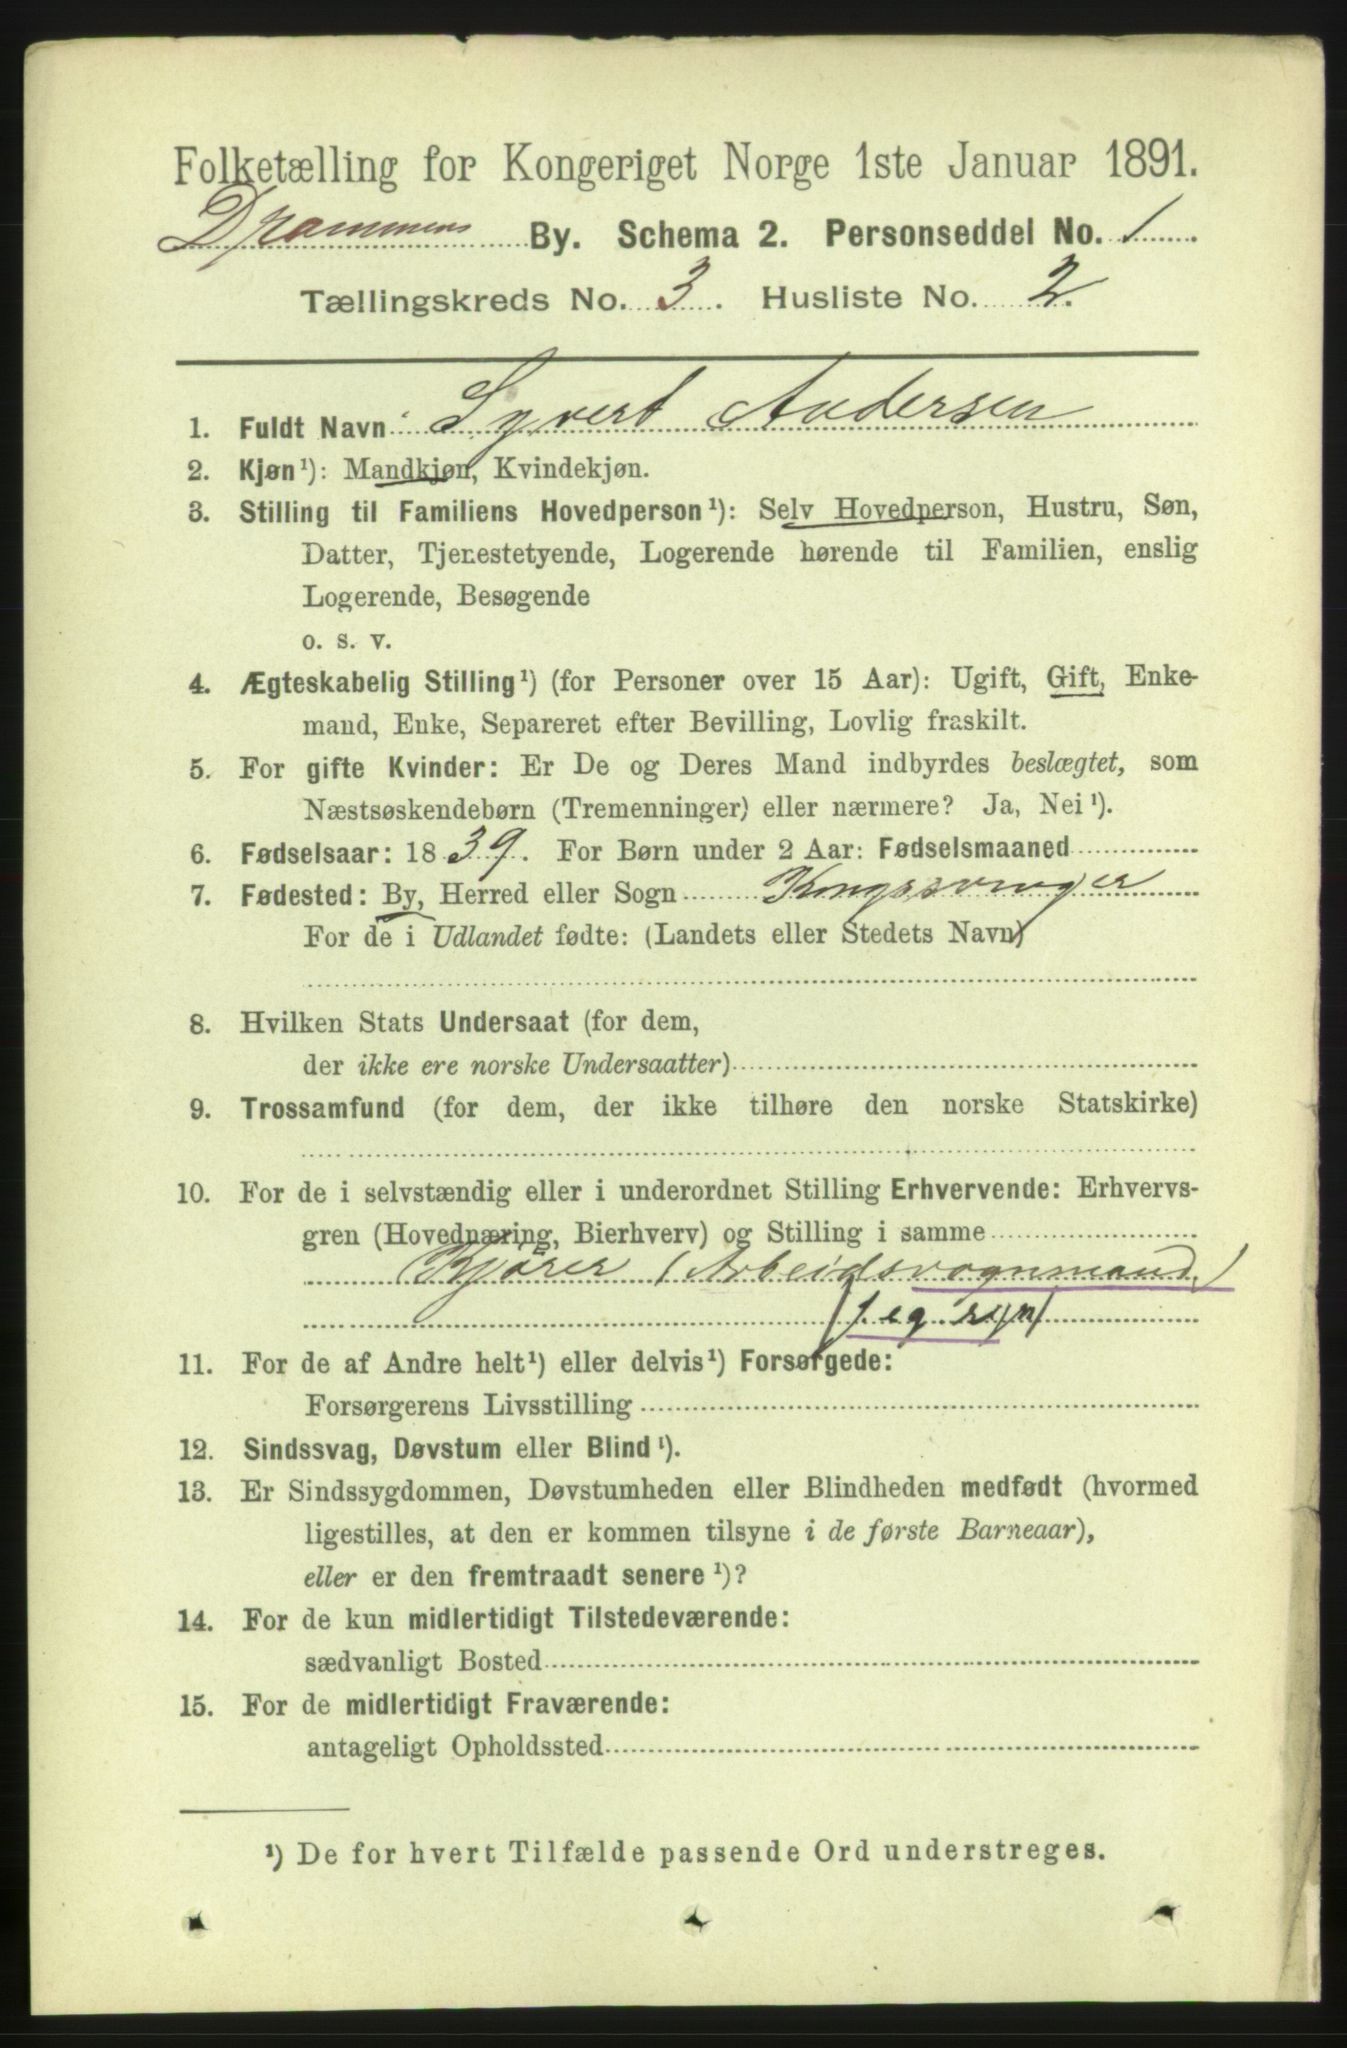 Folketælling for Kongeriget Norge 1ste Januar 1891.
Drammens By. Schema 2. Personseddel No. 1
Tællingskreds No. 3. Husliste No. 2.
1. Fuldt Navn Syvert Andersen
2. Kjøn¹): Mandkjøn, Kvindekjøn.
3. Stilling til Familiens Hovedperson¹): Selv Hovedperson, Hustru, Søn,
Datter, Tjenestetyende, Logerende hørende til Familien, enslig
Logerende, Besøgende
o. s. v.
4. Ægteskabelig Stilling¹) (for Personer over 15 Aar): Ugift, Gift, Enke-
mand, Enke, Separeret efter Bevilling, Lovlig fraskilt.
5. For gifte Kvinder: Er De og Deres Mand indbyrdes beslægtet, som
Næstsøskendebørn (Tremenninger) eller nærmere? Ja, Nei¹).
6. Fødselsaar: 1839. For Børn under 2 Aar: Fødselsmaaned
7. Fødested: By, Herred eller Sogn Kongsvinger
For de i Udlandet fødte: (Landets eller Stedets Navn)
8. Hvilken Stats Undersaat (for dem,
der ikke ere norske Undersaatter)
9. Trossamfund (for dem, der ikke tilhøre den norske Statskirke)
10. For de i selvstændig eller i underordnet Stilling Erhvervende: Erhvervs-
gren (Hovednæring, Bierhverv) og Stilling i samme
Kjører (Arbeidsvognmand)
11. For de af Andre helt¹) eller delvis¹) Forsørgede:
Forsørgerens Livsstilling
12. Sindssvag, Døvstum eller Blind¹).
13. Er Sindssygdommen, Døvstumheden eller Blindheden medfødt (hvormed
ligestilles, at den er kommen tilsyne i de første Barneaar),
eller er den fremtraadt senere¹)?
14. For de kun midlertidigt Tilstedeværende:
sædvanligt Bosted
15. For de midlertidigt Fraværende:
antageligt Opholdssted
¹) De for hvert Tilfælde passende Ord understreges.